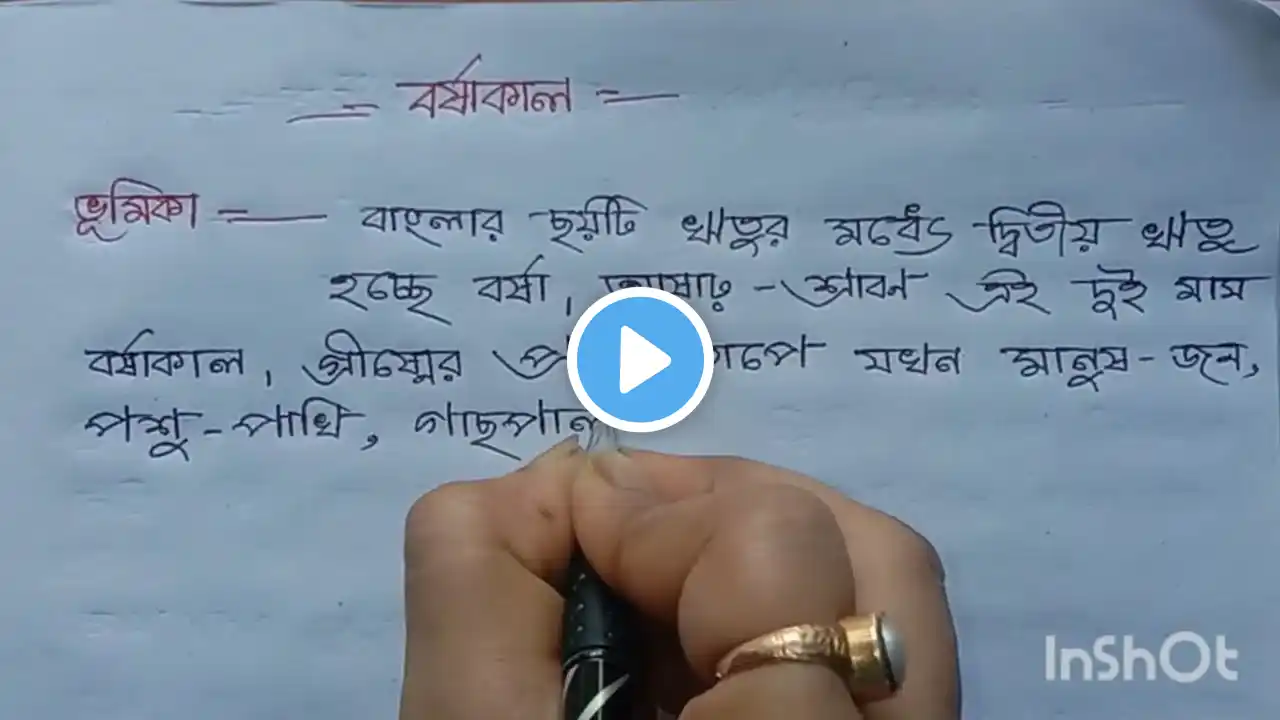 বর্ষাকাল
ভূমিকা — বাংলার ছয়টি ঋতুর মধ্যে দ্বিতীয় ঋতু
হচ্ছে বর্ষা, আষাঢ় - শ্রাবণ এই দুই মাস
বর্ষাকাল, গ্রীষ্মের যখন মানুষ - জন,
পশু - পাখি,
InShOt